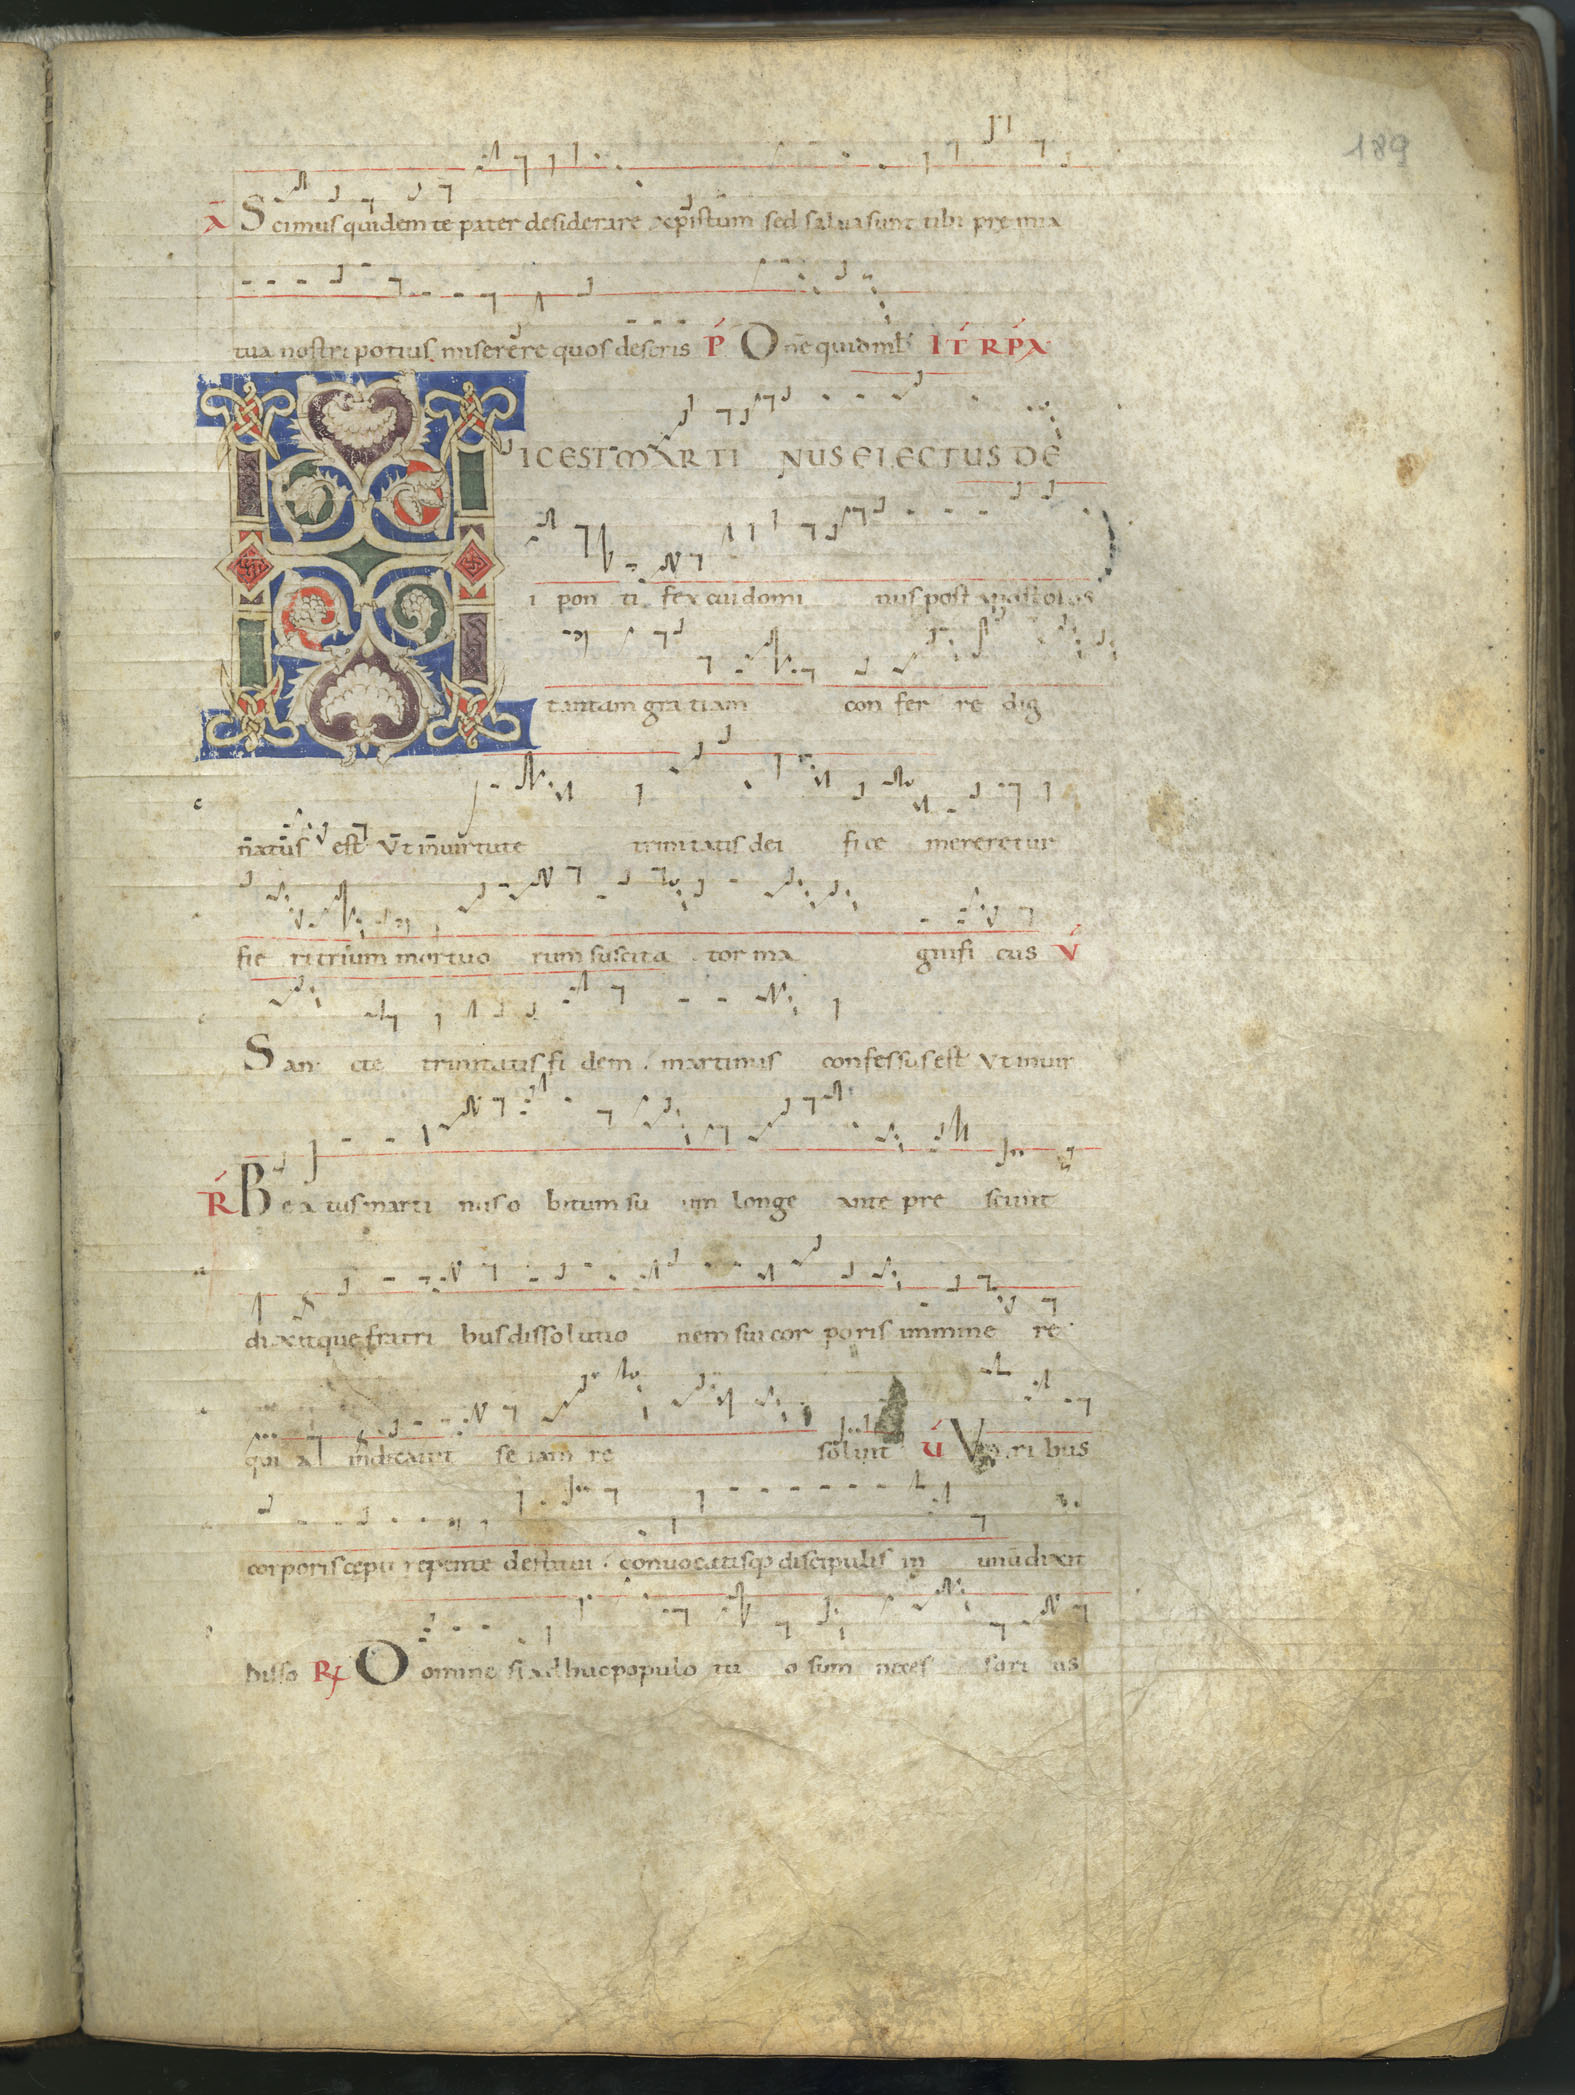 189
A Scimus quidem te pater desiderare xpistum sed salua sunt tibi premia
tua nostri potius miserere quos deseris P One quid mlt IT RPA
HIC EST MARTI NUS ELECTUS DE
i pon ti fex cui domi nus post apostolos
tantam gra tiam con fer re dig
natus est Vt in uirtute trini tatis dei fice mereretur
fie ri trium mortuo rum suscita tor ma gnifi cus V
San cte trinitatis fi dem martinus confessus est Vt in uir
R Be a tus marti nus o bitum su um longe ante pre sciuit
dixitque fratri bus dissolutio nem sui cor poris immine re
qui a indicauit se iam re solui V Viribus
corporis cepit repente destitui conuocatisq discipulis in unu dixit
disso R Domine si adhuc populo tu o sum neces sari us